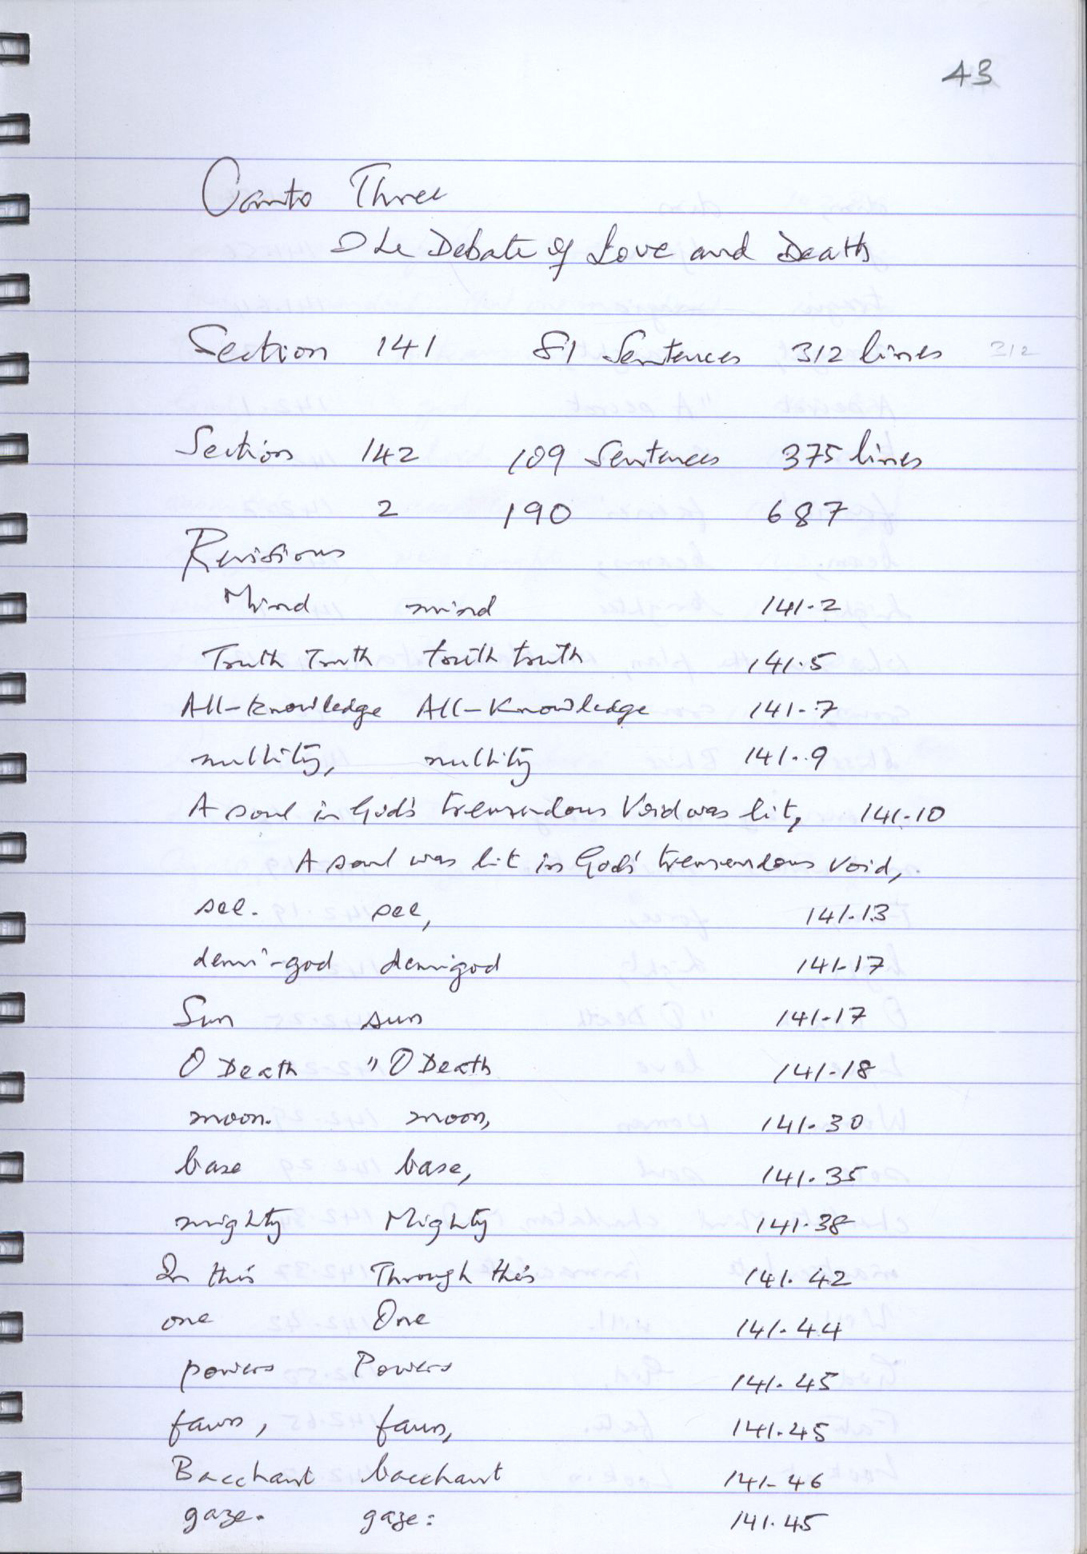 43
Canto Three
The Debate of Love and Death
Section 141 81 Sentences 312 lines 312
Section 142 109 Sentences 375 lines
2 190 687
Revisions
Mind mind 141.2
Truth Truth truth truth 141.5
All-knowledge All-Knowledge 141.7
nullity, nullity 141.9
A soul in God's tremendous Void was lit, 141.10
A soul was lit in God's tremendous Void,
see. see, 141.13
demi-god demigod 141.17
Sun sun 141.17
O Death "O Death 141.18
moon. moon, 141.30
base base, 141.35
mighty Mighty 141.38
In this Through this 141.42
one One 141.44
powers Powers 141.45
faun, 141.45
Bacchant bacchant 141.46
gaze. gaze: 141.45